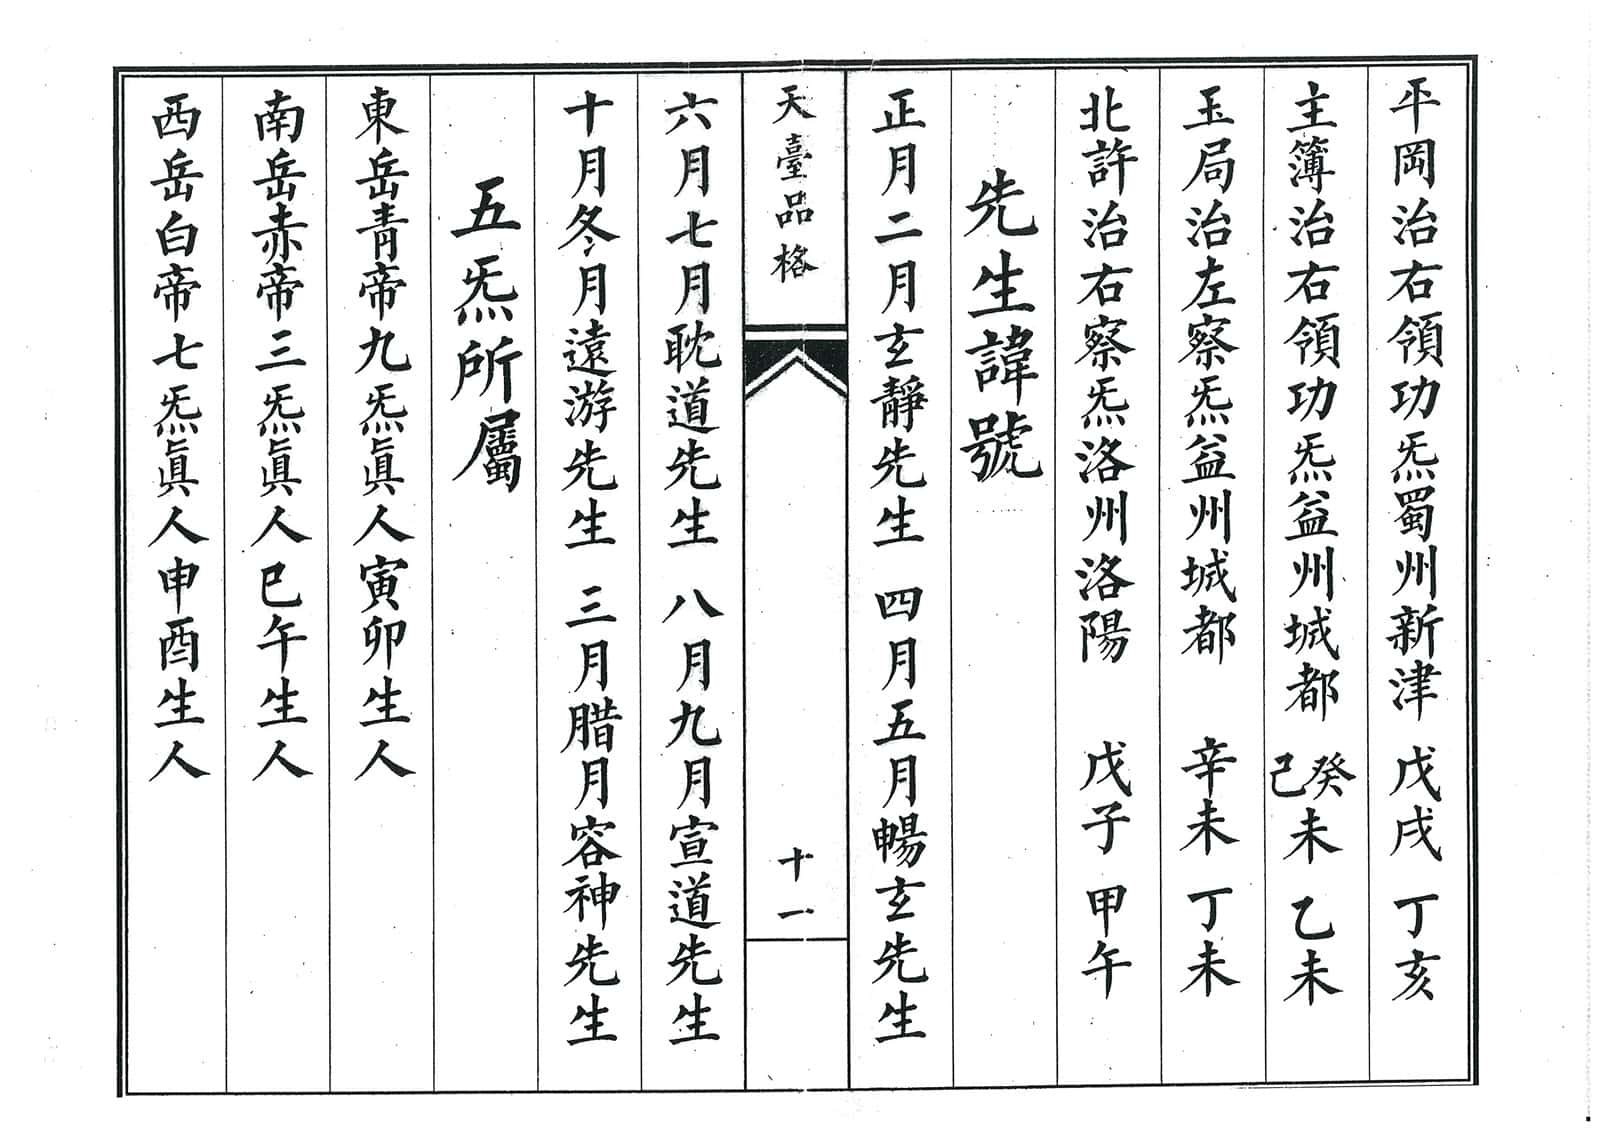 平岡治右領功炁蜀州新津 戊戌 丁亥
主簿治右領功炁益州城都 癸己未 乙未
玉局治左察炁益州城都 辛未 丁未
北許治右察炁洛州洛陽 戊子 甲午
先生諱號
正月二月玄靜先生 四月五月暢玄先生
天臺品格 十一
六月七月耽道先生 八月九月宣道先生
十月冬月遠游先生 三月腊月容神先生
五炁所屬
東岳青帝九炁眞人寅卯生人
南岳赤帝三炁眞人巳午生人
西岳白帝七炁眞人申酉生人